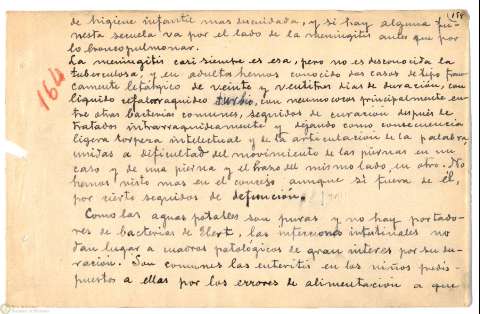 158
164
de higiene infantil mas descuidada, y si hay alguna fu-
nesta secuela va por el lado de la meningitis antes que por
lo bronco pulmonar.
La meningitis casi siempre es esa, pero no es desconocida la
tuberculosa, y en adulta hemos conocido dos casos de tipo fran-
camente letárgico de veinte y ventitres dias de duración, con
liquido cefalorraquideo turbio, con neumococos principalmente en-
tre otras bacterias comunes, seguidos de curacion despues de
tratados intrarraquideamente y dejando como consecuencia
ligera torpeza intelectual y de la articulacion de la palabra,
unidas a dificultad del movimiento de las piernas en un
caso y de una pierna y el brazo del mismo lado, en otro. No
hemos visto mas en el concejo aunque si fuera de él,
por cierto seguidos de defunción.
Como las aguas potables son puras y no hay portado-
res de bacterias de Ebert, las infecciones intestinales no
dan lugar a cuadros patológicos de gran interes por su du-
ración. Son comunes las enteritis en los niños predis-
puestos a ellas por los errores de alimentación a que